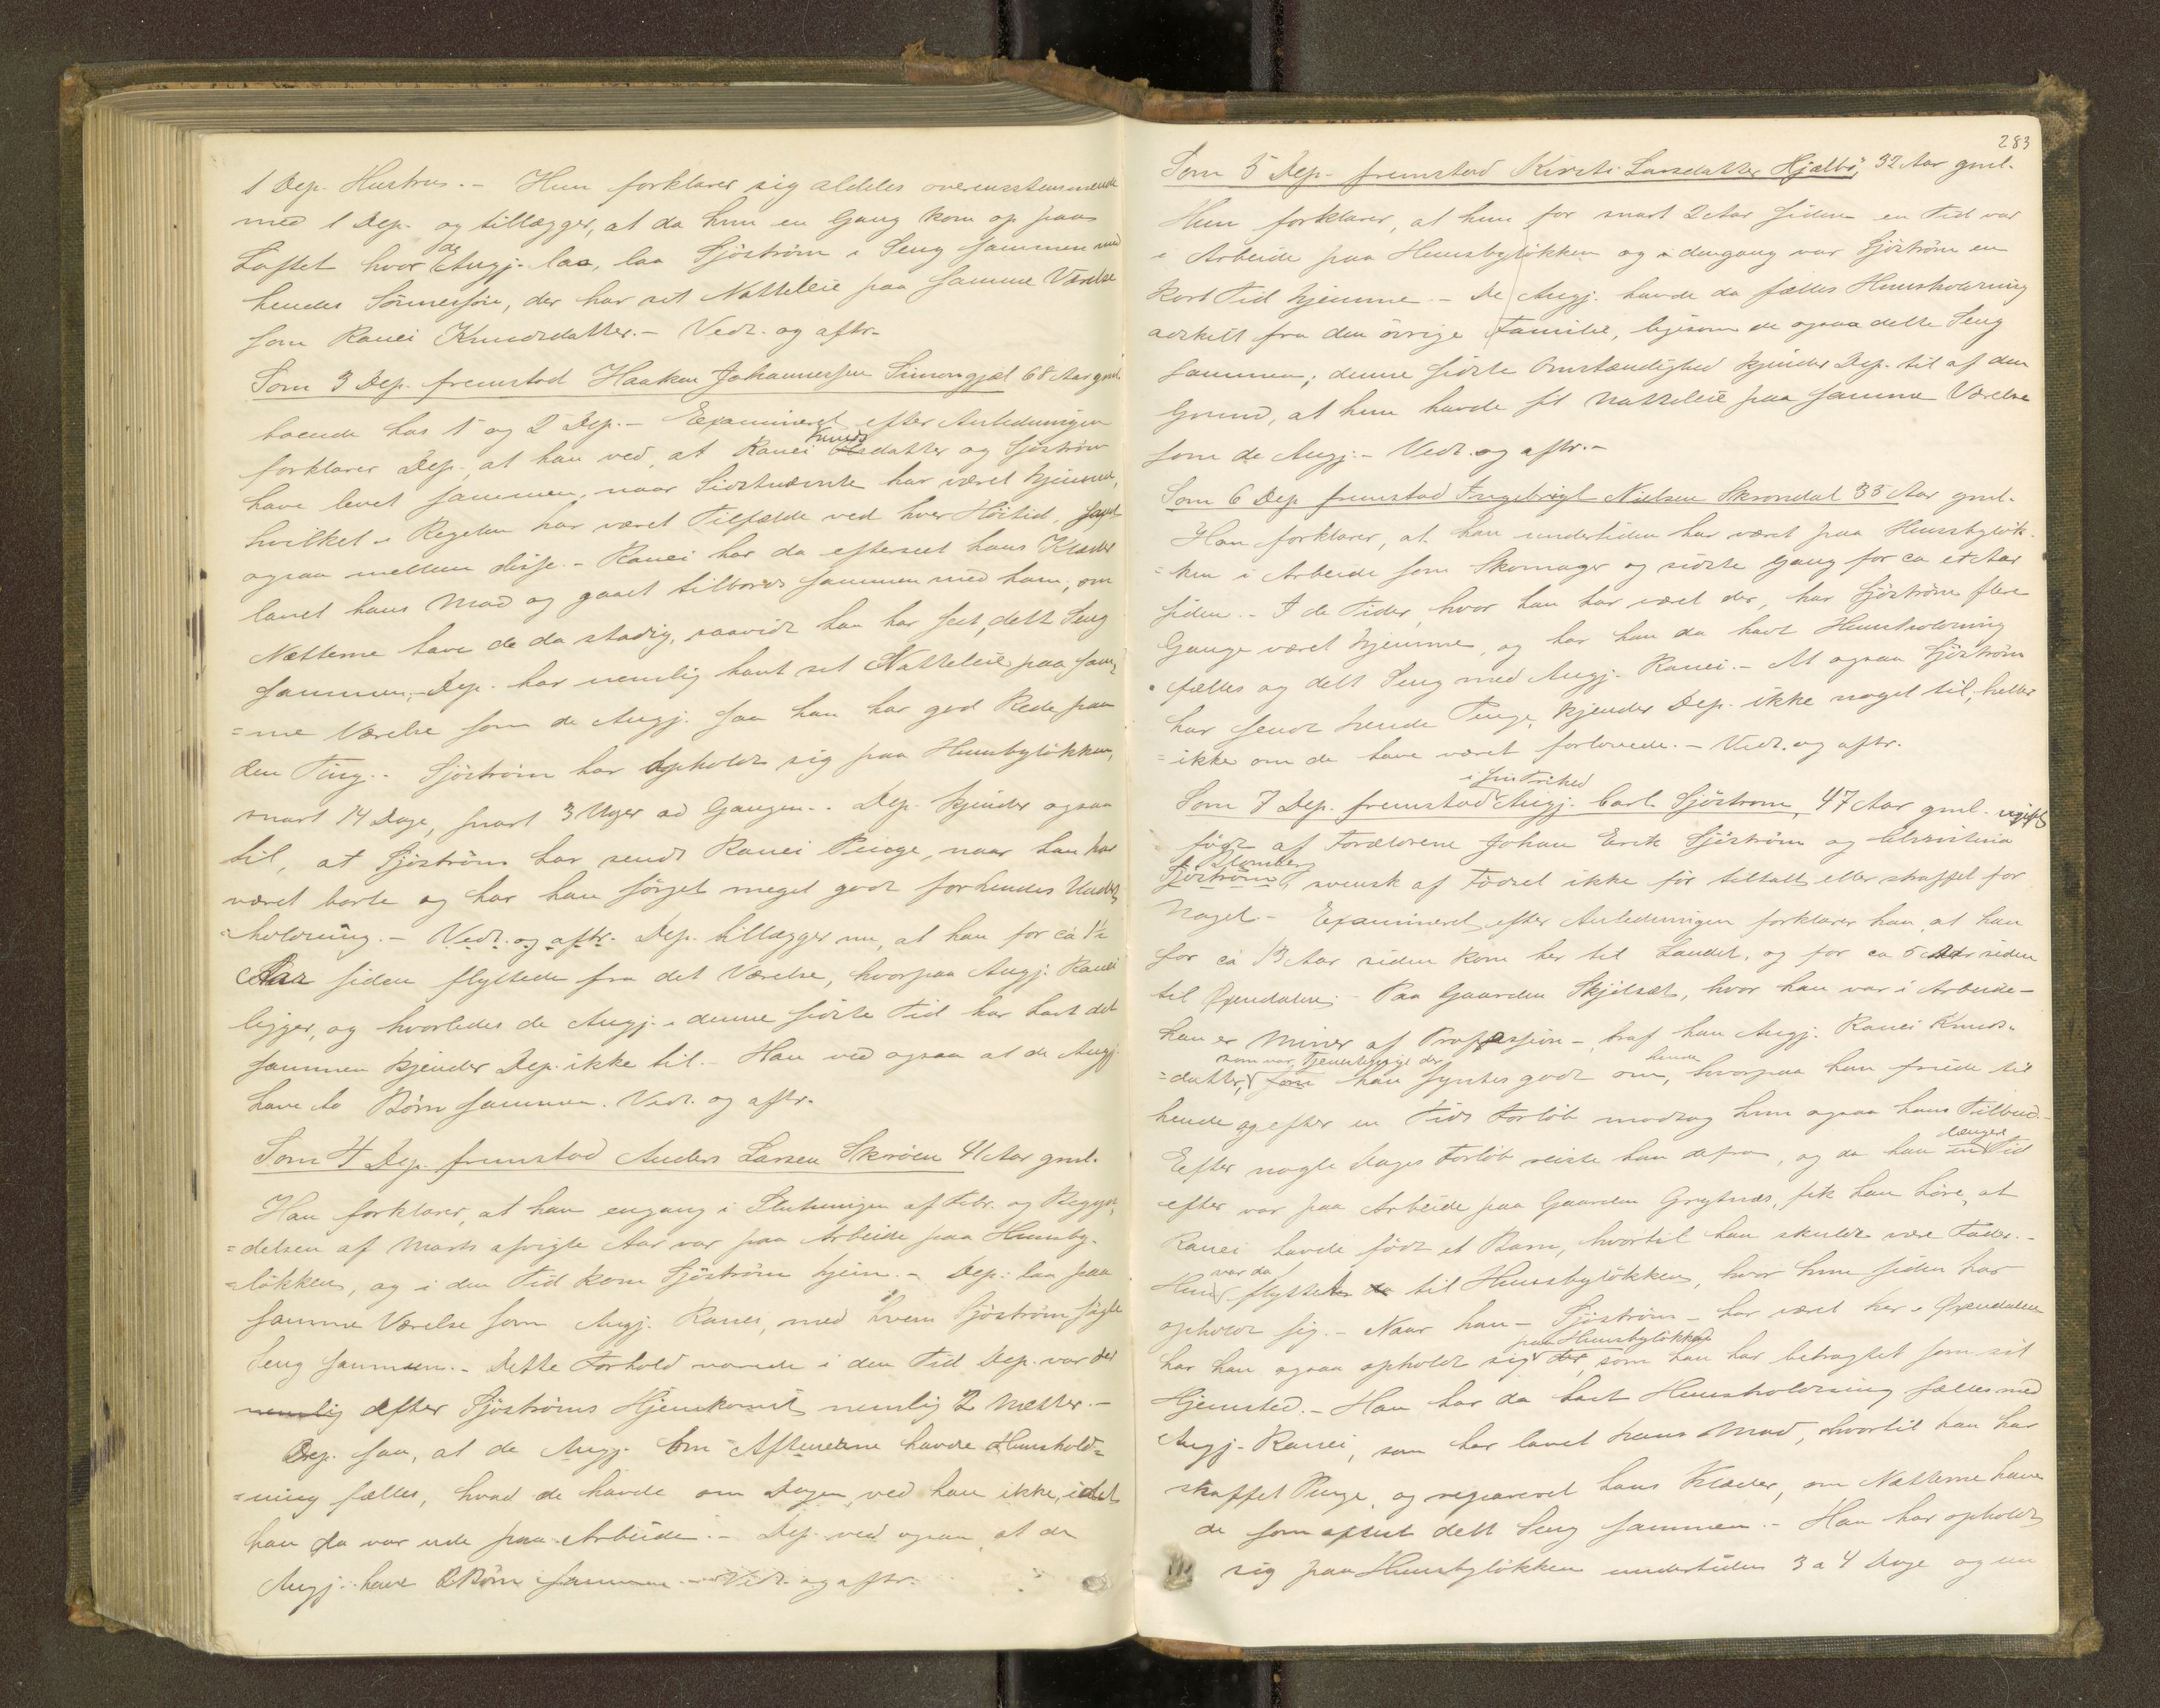 1 Dep. Hustru. - Hun forklarer sig aldeles overensstemmende
med 1 Dep. og tillægger, at da hun en Gang kom op paa
Loftet hvor de Angj. laa, laa Sjöström i Seng sammen med
hendes Sönnesön, der har sit Natteleie paa samme Værelse
som Ranei Knudsdatter. - Vedt. og aftr.
Som 3 Dep. fremstod Haaken Johannessen Simongjæl 68 Aar gml.
boende hos 1 og 2 Dep. - Examineret efter Anledningen
forklarer Dep., at han ved, at Ranei Knudsdatter og Sjöström
have levet sammen, naar Sidstnævnte har været hjemme,
hvilket i Regelen har været Tilfælde ved hver Höitid, samt
ogsaa mellem disse. - Ranei har da efterseet hans Klæder
lavet hans Mad og gaaet tilbords sammen med ham; om
Nætterne have de da stadig, saavidt han har seet, delt Seng
sammen; - Dep. har nemlig havt sit Natteleie paa sam-
=me Værelse som de Angj. saa han har god Rede paa
den Ting. - Sjöström har opholdt sig paa Hunsbylökken,
snart 14 Dage, snart 3 Uger ad Gangen. - Dep. kjender ogsaa
til, at Sjöström har sendt Ranei Penge, naar han har
været borte og har han sörget meget godt for hendes Under-
=holdning. - Vedt. og aftr. Dep. tillægger nu, at han for ca 1½
Aar siden flyttede fra det Værelse, hvorpaa Angj. Ranei
ligger, og hvorledes de Angj. i denne sidste Tid har havt det
sammen kjender Dep. ikke til. - Han ved ogsaa at de Angj.
have to Börn sammen. Vedt. og aftr.
Som 4 Dep. fremstod Anders Larsen Skröen 41 Aar gml.
Han forklarer, at han engang i Slutningen af Febr. og Begyn-
=delsen af Marts afvigte Aar var paa Arbeide paa Hunsby-
=lökken, og i den Tid kom Sjöström hjem. - Dep. laa paa
samme Værelse som Angj. Ranei, med hvem Sjöström sögte
Seng sammen. - Dette Forhold varede i den Tid Dep. var der
nemlig efter Sjöströms Hjemkomst nemlig 2 Nætter. -
Dep. saa, at de Angj. om Aftenerne havde Hunshold-
=ning fælles, hvad de havde om Dagen, ved han ikke, idet
han da var ude paa Arbeide. - Dep. ved ogsaa, at de
Angj. have 2 Börn sammen. - Vedt. og aftr.
283
Som 5 Dep. fremstod Kirsti Larsdatter Hjælbö, 32 Aar gml.
Hun forklarer, at hun for snart 2 Aar siden en Tid var
i Arbeide paa Hunsbylökken og i dengang var Sjöström en
kort Tid hjemme. - De Angj. havde da fælles Hunsholdning
adskilt fra den övrige Familie, ligesom de ogsaa delte Seng
sammen; denne sidste Omstændighed kjender Dep. til af den
Grund, at hun havde sit Natteleie paa samme Værelse
som de Angj. - Vedt. og aftr. -
Som 6 Dep. fremstod Ingebrigt Nielsen Skrondal 35 Aar gml.
Han forklarer, at han undertiden har været paa Hunsbylök-
=ken i Arbeide som Skomager og sidste Gang for ca et Aar
siden. - I de Tider, hvor han har været der, har Sjöström flere
Gange været hjemme, og har han da havt Hunsholdning
fælles og delt Seng med Angj. Ranei. - At ogsaa Sjöström
har sendt hende Penge, kjender Dep. ikke noget til, heller
=ikke om de have været forlovede. - Vedt. og aftr.
i sin Frihed
Som 7 Dep. fremstod Angj. Carl Sjöstrom, 47 Aar gml. ugift
födt af Forældrene Johan Erik Sjöström og
Blomberg
Sjöström, svensk af Födsel ikke för tiltalt eller straffet for
Noget - Examineret efter Anledningen forklarer han, at han
for ca 13 Aar siden kom her til Landet, og for ca 5 Aar siden
til Öxendalen. - Paa Gaarden Skjölsæt, hvor han var i Arbeide -
han er Minør af Profession -, traf han Angj. Ranei Knuds-
som var Tjenestepige der hende
=datter, som han syntes godt om, hvorpaa han friede til
hende og efter en Tids Forlöb modtog hun ogsaa hans Tilbud. -
længere
Efter nogle Dages Forlöb reiste han derfra, og da han en Tid
efter var paa Arbeide paa Gaarden Grytnæs, fik han höre, at
Ranei havde födt et Barn, hvortil han skulde være Fader. -
var da
Hun flyttet da til Hunsbylökken, hvor hun siden har
opholdt sig. - Naar han - Sjöström - har været her i Öxendalen
paa Hunsbylökken
har han ogsaa opholdt sig der, som han har betragtet som sit
Hjemsted. - Han har da havt Hunsholdning fælles med
Angj. Ranei, som har lavet hans Mad, hvortil han har
skaffet Penge, og repareret hans Klæder, om Nætterne have
de som oftest delt Seng sammen. - Han har opholdt
sig paa Hunsbylökken undertiden 3 a 4 Dage og un